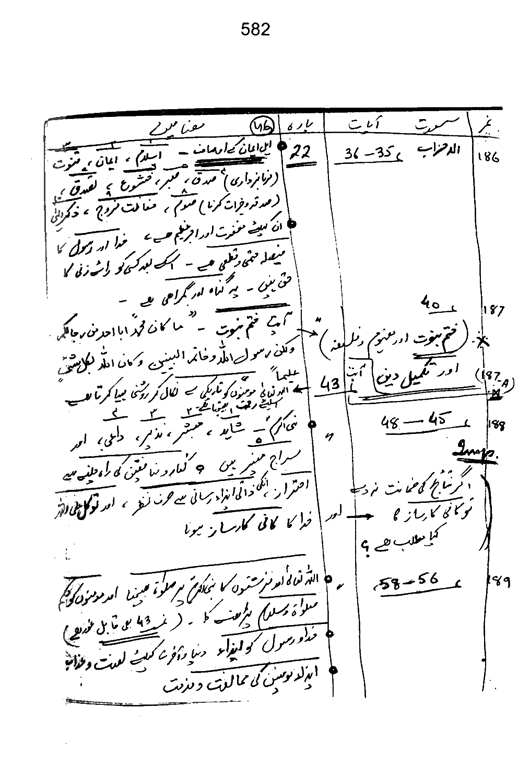 582
نمبر سورت آیات پارہ (46) مضامین
186 الاحزاب 35-36 22 اہل ایمان کے اوصاف - اسلام، ایمان، قنوت
(فرمانبرداری)، صدق، صبر، خشوع، تصدق،
(صدقہ و خیرات کرنا)، صوم، حفاظت فروج، ذکر الٰہی
ان کیلئے مغفرت اور اجر عظیم ہے، خدا اور رسول کا
فیصلہ حتمی و قطعی ہے - اسکے بعد کسی کو رائے زنی کا
حق نہیں - یہ گناہ اور گمراہی ہے -
187 " 40 " آیت ختم نبوت - "ما کان محمد ابا احد من رجالکم
(ختم نبوت اور مفہوم و فلسفہ) ولکن رسول اللہ وخاتم النبیین وکان اللہ بکل شیء
علیما"
(187-A) اور تکمیل دین آیت 43 اللہ تعالیٰ مومنوں کو تاریکی سے نکال کر روشنی مہیا کرتا ہے
188 " 45-48 " نبی اکرم - شاہد، مبشر، نذیر، داعی، اور
Imp. سراج منیر ہیں کفار و منافقین کی راہ چلنے سے
اگر نتائج کی ضمانت نہ دے احتراز، انکی ذاتی ایذا رسانی سے صرف نظر، اور توکل علی اللہ
تو کافی کارساز کا اور خدا کا کافی کارساز ہونا
کیا مطلب ہے؟
189 " 56-58 " اللہ تعالیٰ اور فرشتوں کا نبی اکرم پر صلوٰۃ بھیجنا اور مومنوں کو حکم
صلوٰۃ و سلام پڑھنے کا - (نمبر 43 بھی قابل غور ہے)
خدا و رسول کو ایذاء دنیا و آخرت کیلئے لعنت و عذاب
ایذاء مومنین کی ممانعت و مذمت